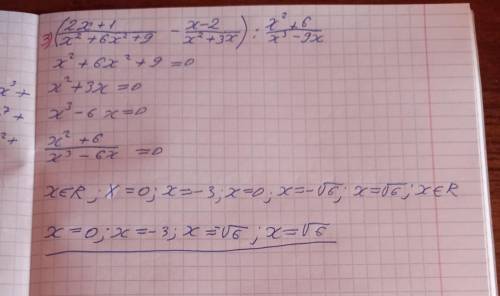 3) (2x+1 / x²+6x²+9 - x-2 / x²+3x) : x²+6 / x³-9x
x²+6x²+9=0
x²+3x=0
x³-6x=0
x²+6 / x³-6x =0
x∈R; x=0; x=-3; x=0; x=-√6; x=√6; x∈R
x=0; x=-3; x=-√6; x=√6